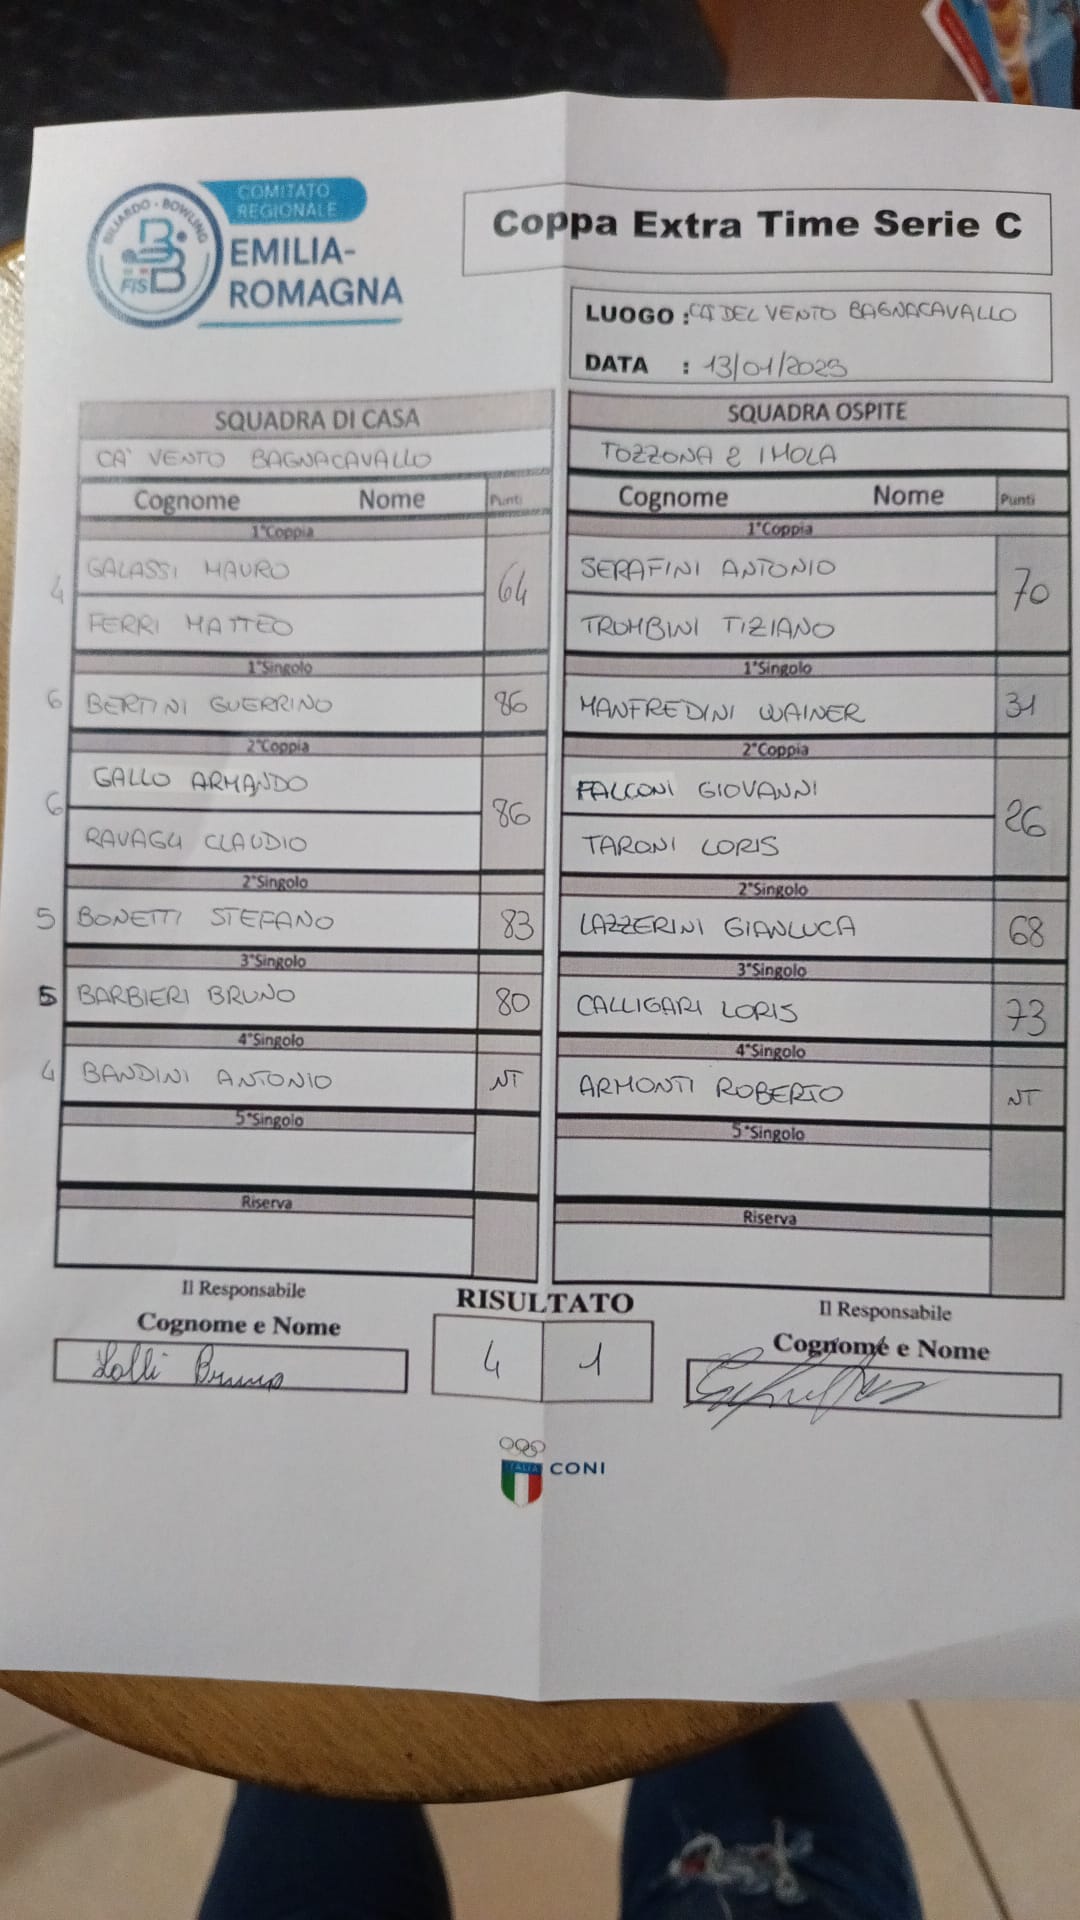 COMITATO
REGIONALE
BILIARDO - BOWLING
FISBB
EMILIA-
ROMAGNA
Coppa Extra Time Serie C
LUOGO : CA' DEL VENTO BAGNACAVALLO
DATA : 13/01/2025
SQUADRA DI CASA
CA' VENTO BAGNACAVALLO
Cognome Nome Punti
1°Coppia
4 GALASSI MAURO 64
FERRI MATTEO
1°Singolo
6 BERTINI GUERRINO 86
2°Coppia
GALLO ARMANDO
6 86
RAVAGLI CLAUDIO
2°Singolo
5 BONETTI STEFANO 83
3°Singolo
5 BARBIERI BRUNO 80
4°Singolo
4 BANDINI ANTONIO NT
5°Singolo
Riserva
SQUADRA OSPITE
TOZZONA 2 IMOLA
Cognome Nome Punti
1°Coppia
SERAFINI ANTONIO 70
TROMBINI TIZIANO
1°Singolo
MANFREDINI WAINER 31
2°Coppia
FALCONI GIOVANNI 26
TARONI LORIS
2°Singolo
LAZZERINI GIANLUCA 68
3°Singolo
CALLIGARI LORIS 73
4°Singolo
ARMONTI ROBERTO NT
5°Singolo
Riserva
Il Responsabile
Cognome e Nome
Lolli Bruno
RISULTATO
4 1
Il Responsabile
Cognome e Nome
ITALIA
CONI